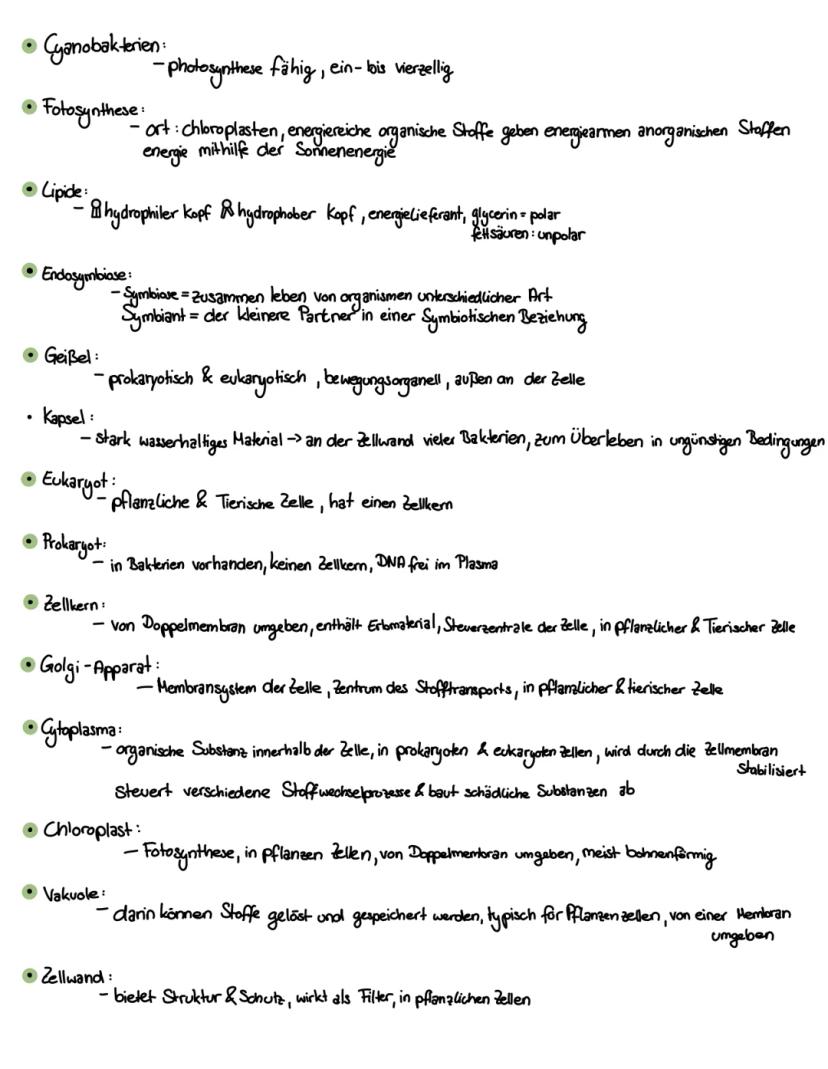 • Cyanobakterien:
- photosynthese fähig, ein- bis vierzellig
• Fotosynthese:
- ort: chloroplasten, energiereiche organische Stoffe geben energiearmen anorganischen Stoffen
energie mithilfe der Sonnenenergie
• Lipide:
- hydrophiler Kopf & hydrophober Kopf, energieLieferant, glycerin = polar
fettsäuren: unpolar
• Endosymbiose:
- Symbiose = zusammen leben von organismen unterschiedlicher Art
Symbiant = der kleinere Partner in einer Symbiotischen Beziehung
• Geißel:
- prokaryotisch & eukaryotisch, bewegungsorganell, außen an der Zelle
• Kapsel:
- stark wasserhaltiges Material -> an der Zellwand vieler Bakterien, zum Überleben in ungünstigen Bedingungen
• Eukaryot:
- pflanzliche & Tierische Zelle, hat einen Zellkern
• Prokaryot:
- in Bakterien vorhanden, keinen Zellkern, DNA frei im Plasma
• Zellkern:
- von Doppelmembran umgeben, enthält Erbmaterial, Steuerzentrale der Zelle, in pflanzlicher & Tierischer Zelle
• Golgi-Apparat:
- Membransystem der Zelle, Zentrum des Stofftransports, in pflanzlicher & tierischer Zelle
• Cytoplasma:
- organische Substanz innerhalb der Zelle, in prokaryoten & eukaryoten zellen, wird durch die Zellmembran
Stabilisiert
Steuert verschiedene Stoffwechselprozesse & baut schädliche Substanzen ab
• Chloroplast:
- Fotosynthese, in pflanzen Zellen, von Doppelmembran umgeben, meist bohnenförmig
• Vakuole:
- darin können Stoffe gelöst und gespeichert werden, typisch für Pflanzenzellen, von einer Membran
umgeben
• Zellwand:
- bietet Struktur & Schutz, wirkt als Filter, in pflanzlichen Zellen